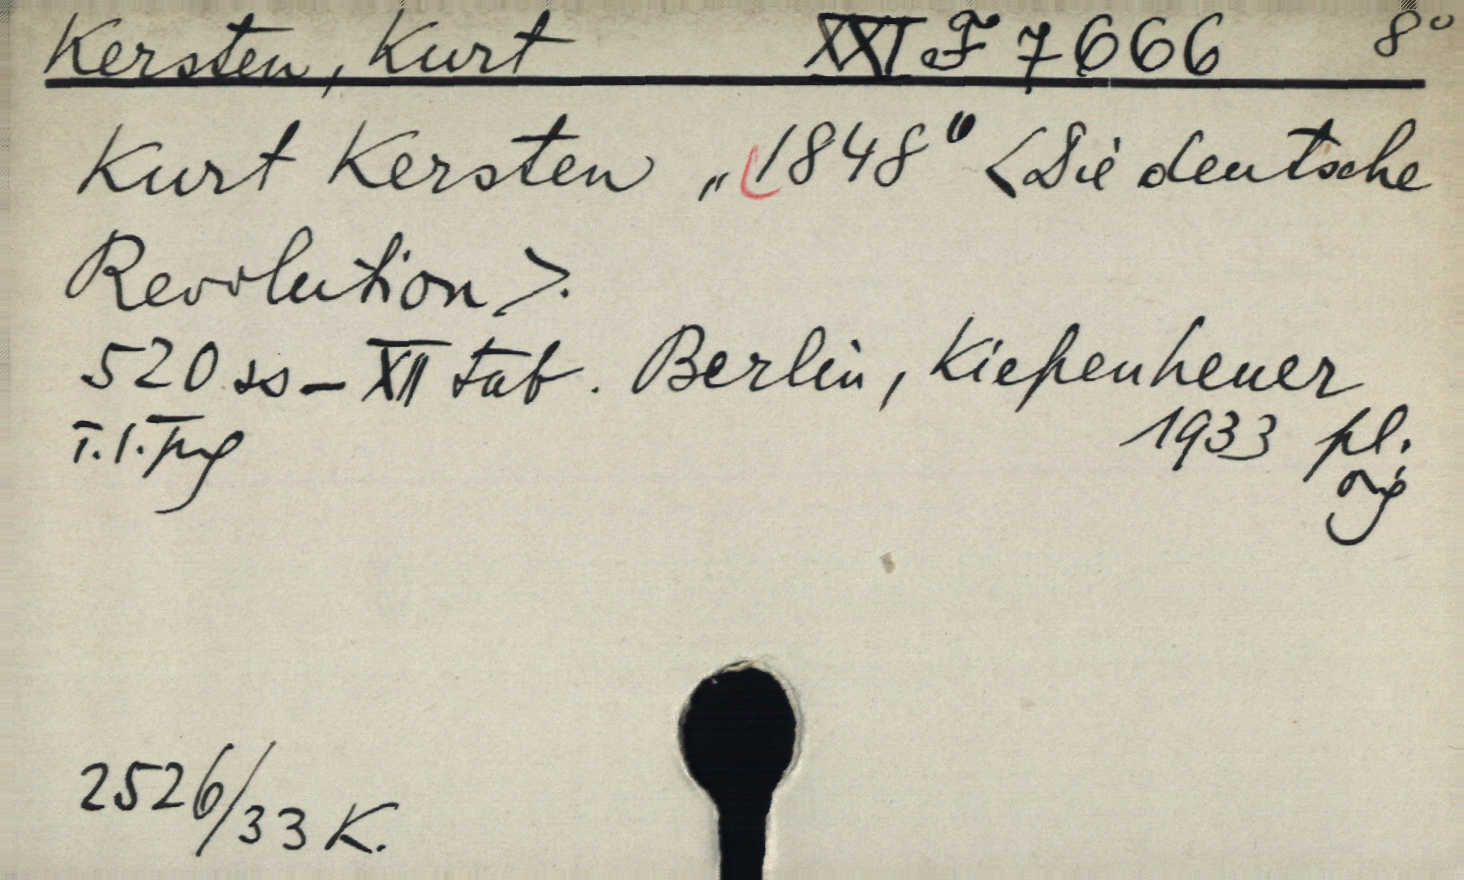 Kersten, Kurt XXI F 7666 8°
Kurt Kersten „1848" <Die deutsche
Revolution>.
520 ss – XII tab. Berlin, Kiepenheuer
1933 pl.
T.I.
orig
2526/33 K.